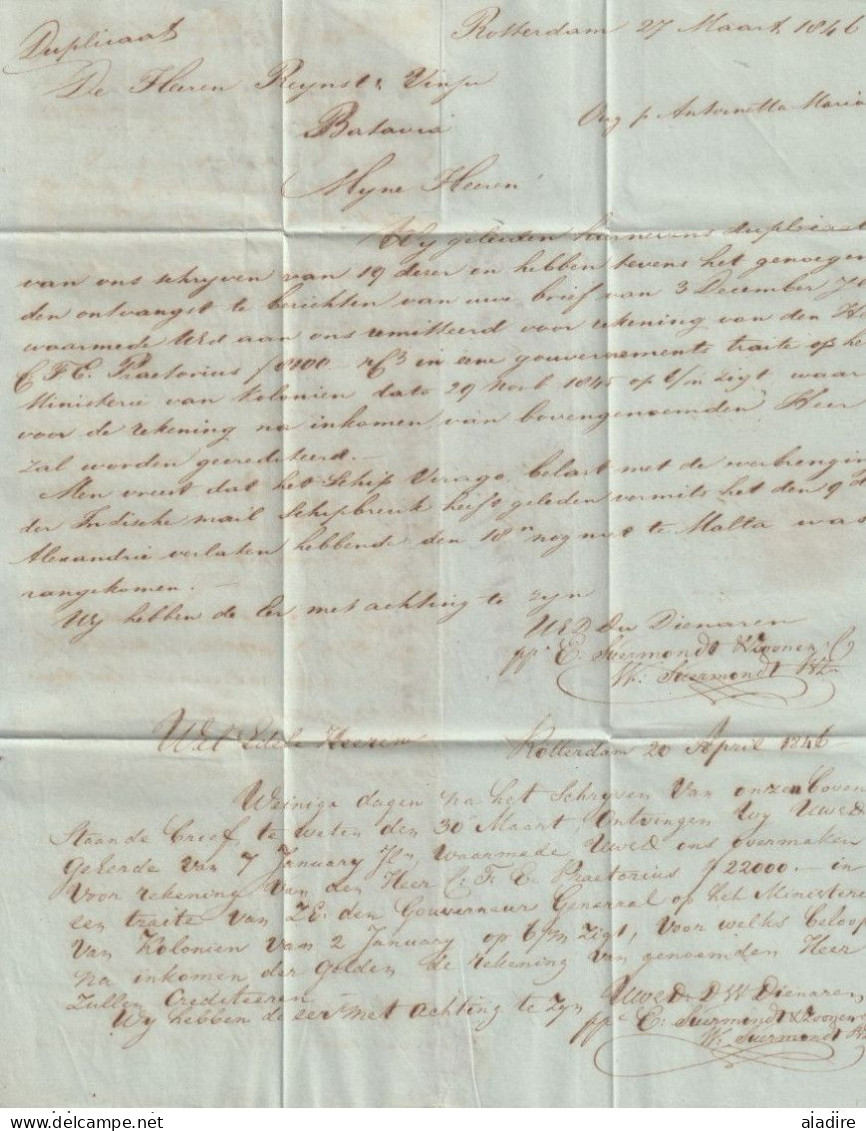 Duplicaat
Rotterdam 27 Maart 1846
De Heeren Reynst & Vinju
Batavia
Org p Antoinetta Maria
Myne Heeren
Wy geleiden hiernevens duplicaat
van ons schryven van 19 dezer en hebben tevens het genoegen
den ontvangst te berichten van uwe brief van 3 December Jl
waarmede UEd aan ons remitteerd voor rekening van den
C F C. Praetorius in eene gouvernements traite op he
Ministerie van Kolonien dato 29 Novb 1845 op 6/m zigt waar
voor de rekening na inkomen van bovengenoemden Heer
zal worden gecrediteerd.—
Men vreest dat het Schip Virago belast met de overbrengin
der Indische mail Schipbreuk heeft geleden vermits het den 9
Alexandrie verlaten hebbende den 18n nog niet te Malta was
aangekomen.—
Wy hebben de Eer met achting te zyn
UED Dw Dienaren
ppa E. Suermondt & Zoonen & C
W: Suermondt
Wel Edele Heeren
Rotterdam 20 April 1846
Weinige dagen na het Schryven Van onzen boven
Staande brief, te weten den 30 Maart, Ontvingen wy Uwed
Geëerde van 7 January Jl, waarmede Uwed ons overmaken
Voor rekening Van den Heer C. F. C. Praetorius ƒ22000.— in
een traite van Z.E. den Gouverneur Generaal op het Ministerie
Van Kolonien Van 2 January op 6/m Zigt, Voor welks beloop
na inkomen der gelden de rekening van genoemden Heer
Zullen Crediteeren —
Wy hebben de eer met achting te Zyn
Uwed. DW Dienaren
ppa E: Suermondt & Zoonen
W: Suermondt
delcampe.net
aladire